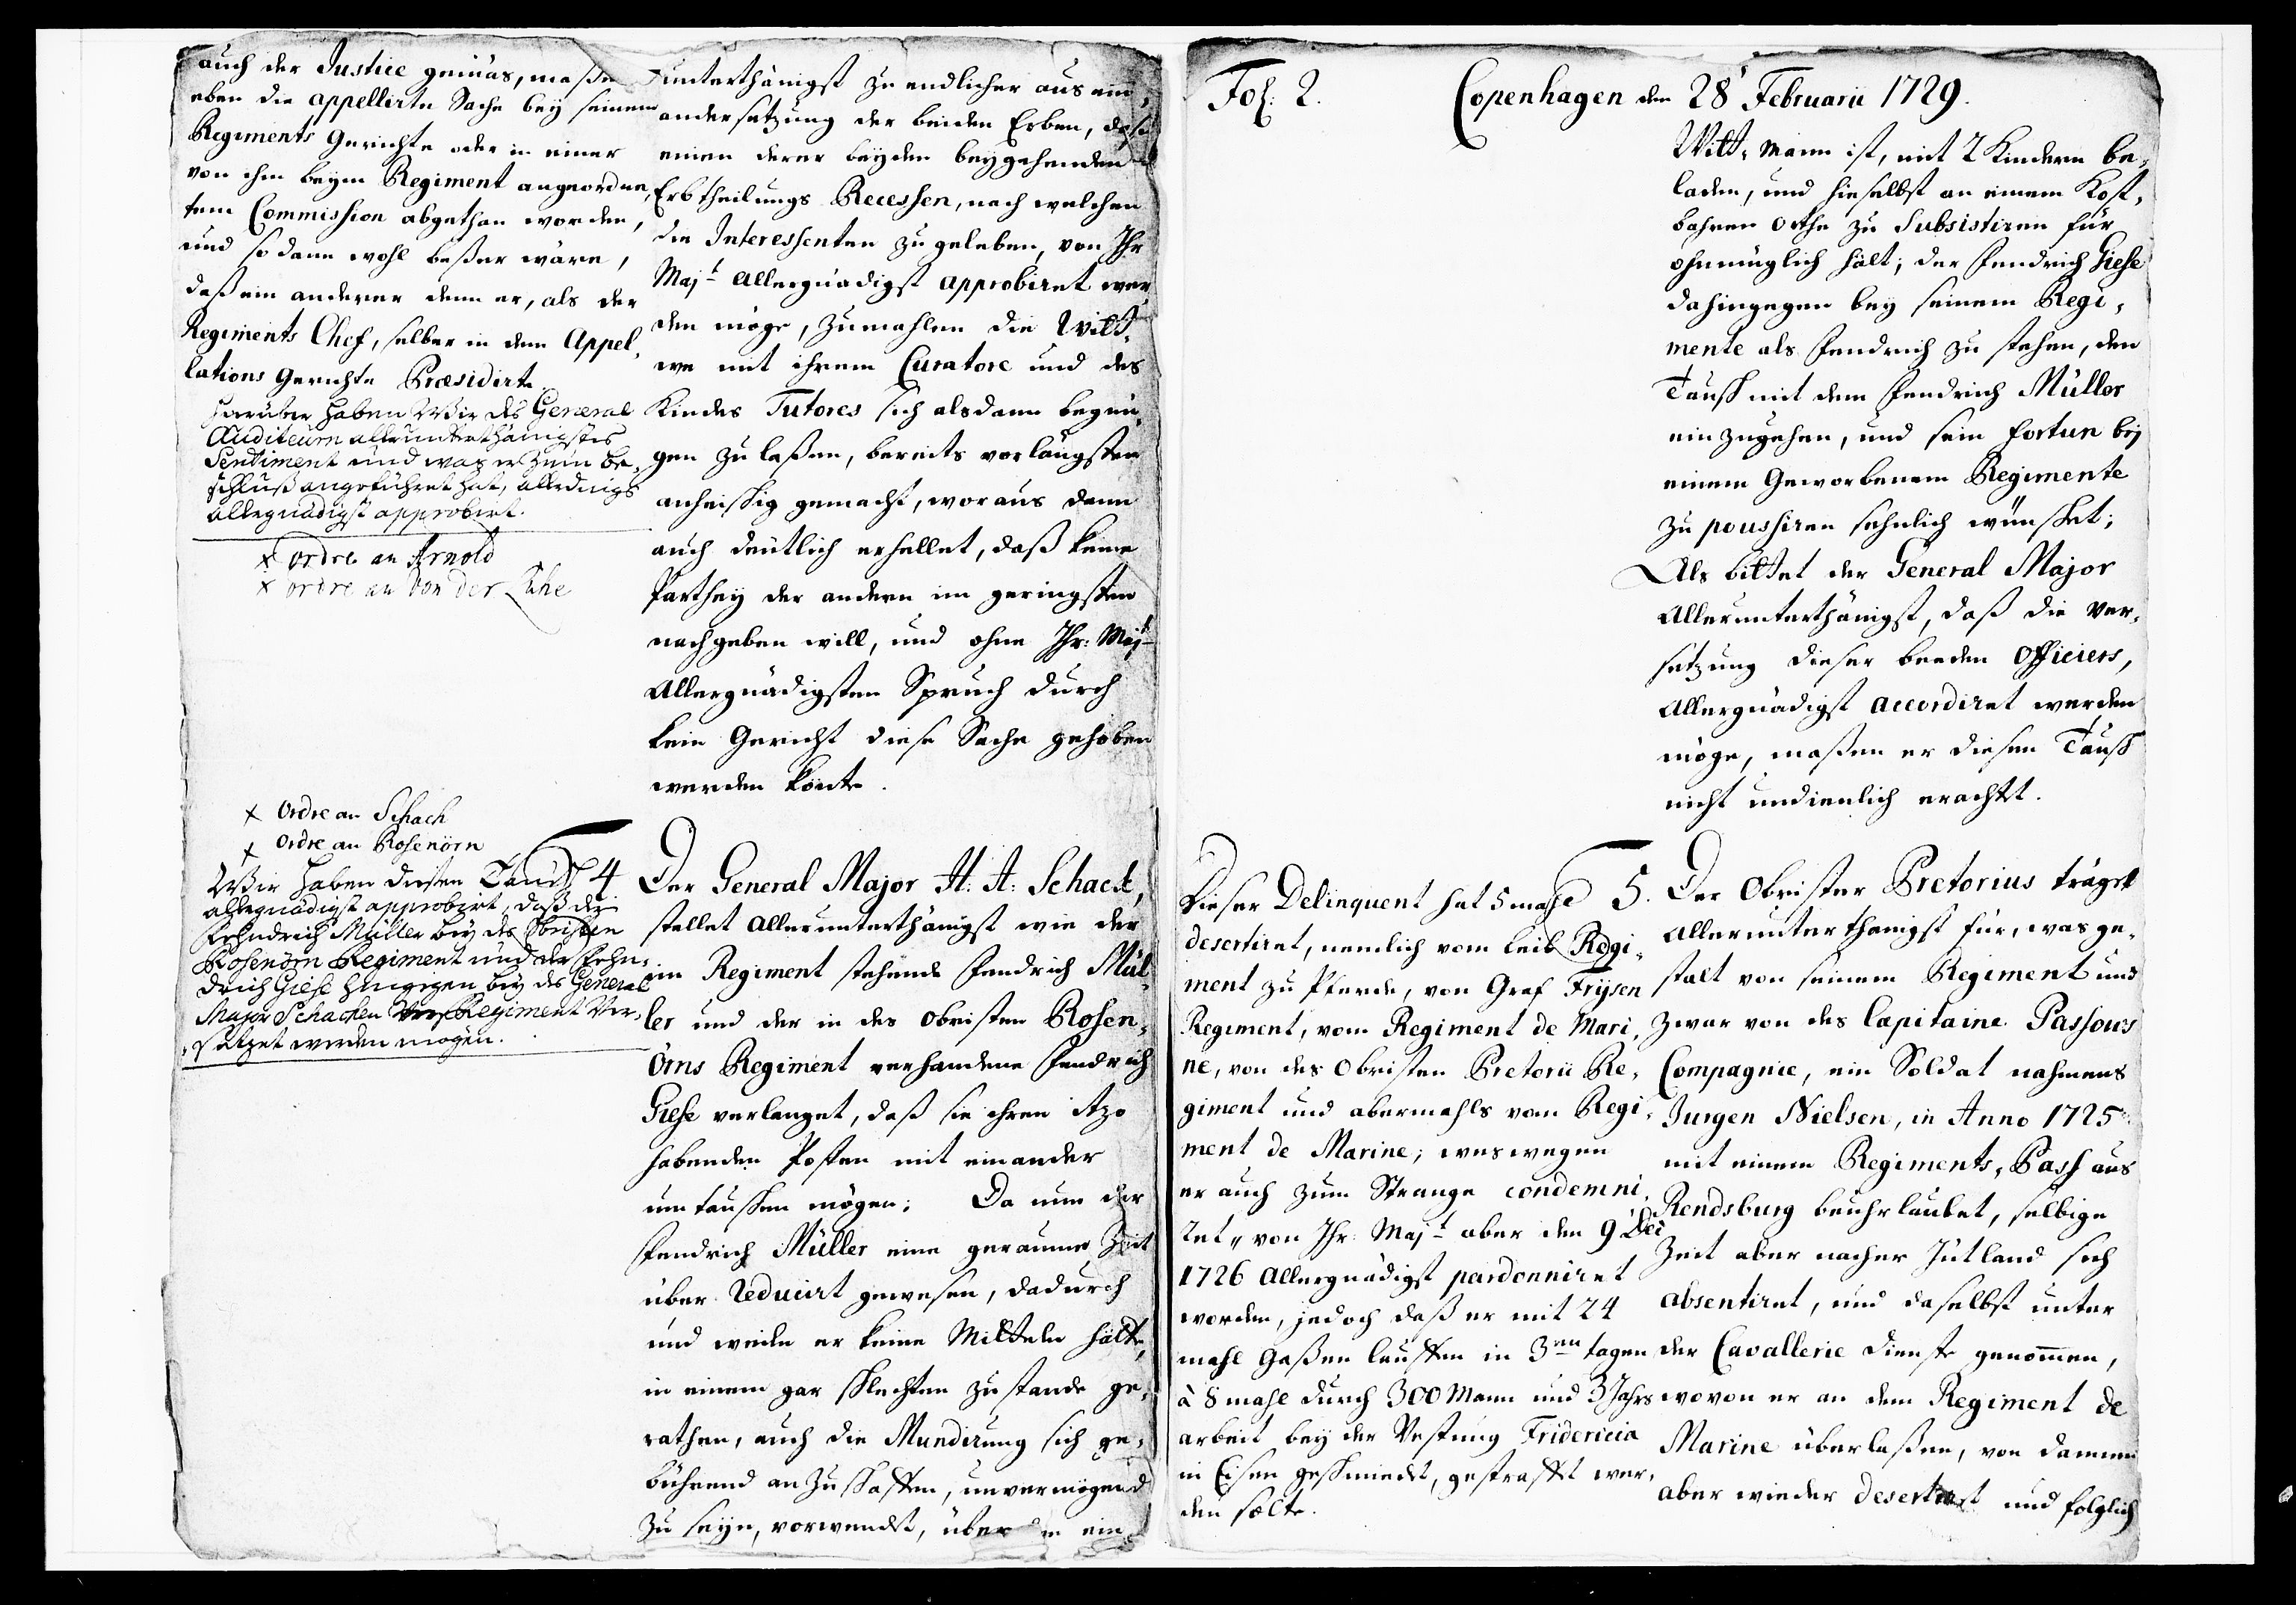 auch der Justice gemäs, maßen
eben die appellirte Sache bey seinem
Regiments Gerichte oder in einer
von ihm beym Regiment angeordne,
tem Commission abgethan worden,
und so dann wohl beßer wäre,
daß ein anderer denn er, als der
Regiments Chef, selber in dem Appel,
lations Gerichte Præsidirte.
Hierüber haben Wir des General
Auditeurn allerunterthänigstes
Sentiment und was er zum Be,
schluß angeführet hat, allerdings
allergnädigst approbirt.
x ordre an Arnold
x ordre an von der Lühe
x Ordre an Schach
x Ordre an Rosenörn
Wir haben diesen Tausch
allergnädigst approbirt, daß der
Fehndrich Müller bey des Obristen
Rosenörn Regiment und der Fehn,
drich Giese hingegen bey des General
Major Schacken Regiment Ver,
setzet werden mögen.
unterthänigst zu endlicher aus ein,
andersetzung der beiden Erben, daß
einen derer beyden beygehenden
Erbtheilungs Recessen, nach welchen
die Interessenten zu geleben, von Ihr
Majt allergnädigst approbiret wer
den möge, zumahlen die Witt,
we mit ihrem Curatore und des
Kindes Tutores sich alsdann begnü,
gen zu laßen, bereits vorlängsten
anheischig gemacht, woraus dann
auch deutlich erhellet, daß keine
Parthey der andern im geringsten
nachgeben will, und ohne Ihr: Majt
Allergnädigsten Spruch durch
kein Gericht diese Sache gehoben
werden könte.
4 Der General Major H: A: Schack,
stellet allerunterthänigst wie der
im Regiment stehende Fendrich Mül
ler und der in des Obristen Rosen,
örns Regiment verhandene Fendrich
Giese verlanget, daß sie ihren itzo
habenden Posten mit einander
umtauschen mögen; Da nun der
Fendrich Müller eine geraume Zeit
über reducirt gewesen, dadurch
und weile er keine Mitteln hätte,
in einem gar schlechten zustande ge,
rathen, auch die Mundirung sich ge,
bührend anzuschaffen, unvermögend
zu seyn, vorwendet, über ein
Fol: 2. Copenhagen den 28t Februarii 1729.
Witt, Mann ist, mit 2 Kindern be,
laden, und hieselbst an einem Kost,
bahren Orthe zu Subsistiren für
ohnmüglich hält; der Fendrich Giese
dahingegen bey seinem Regi,
mente als Fendrich zu stehen, den
Tausch mit dem Fendrich Müller
einzugehen, und sein fortun bey
einem Geworbenem Regimente
zu poussiren sehnlich wünschet;
Als bittet der General Major
Allerunterthänigst, daß die Ver,
setzung dieser beeden Officiers,
Allergnädigst accordiret werden
möge, maßen er diesen Tausch
nicht undienlich erachtet.
Dieser Delinquent hat 5 mahl
desertiret, nemlich vom Leib Regi,
ment zu Pferde, von Graf Frijsen
Regiment, vom Regiment de Mari,
ne, von des Obristen Pretorii Re,
giment und abermahls vom Regi,
ment de Marine; weswegen
er auch zum Strange condemni,
ret, von Ihr: Majt aber den 9t Dec
1726 Allergnädigst pardonniret
worden, jedoch daß er mit 24
mahl Gaßen lauffen in 3en tagen
à 8 mahl durch 300 Mann und 3 Jahrs
arbeit bey der Vestung Fridericia
in Eisen geschmiedet, gestrafft wer,
den solte.
5. Der Obrister Pretorius träget
Allerunterthänigst für, was ge,
stalt von seinem Regiment und
zwar von des Capitaine Passows
Compagnie, ein Soldat nahmens
Jurgen Nielsen, in Anno 1725
mit einem Regiments, Pass aus
Rendsburg beuhrlaubet, selbige
Zeit aber nacher Jütland sich
absentiret, und daselbst unter
der Cavallerie Dienste genommen,
wovon er an dem Regiment de
Marine überlaßen, von dannen
aber wieder desertiret und folglich